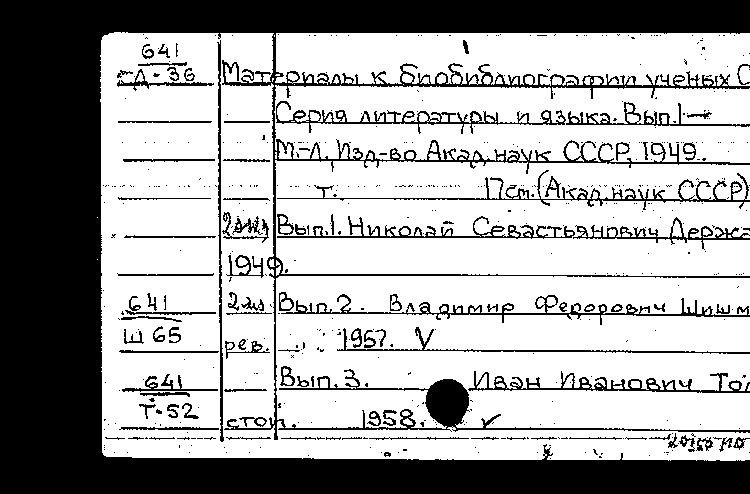 641
Д-36 Материалы к биобиблиографии ученых С
Серия литературы и языка. Вып.1—
М.-Л., Изд-во Акад. наук СССР, 1949.
т. 17см. (Акад. наук СССР)
Вып.1. Николай Севастьянович Держа
1949.
641 Вып.2. Владимир Федорович Шишм
Ш 65 рев. 1957. V
641 Вып.3. Иван Иванович Тол
Т-52 1958. ✓